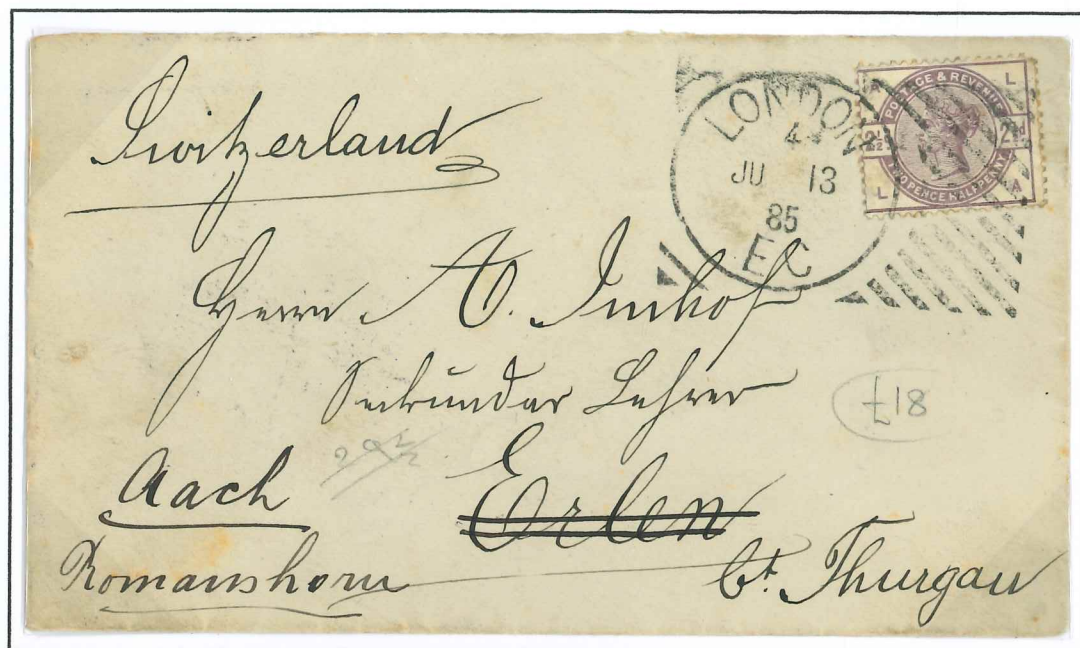 Switzerland
LONDON
4
JU 13
85
E.C
L
POSTAGE & REVENUE
2½d 2½d
TWO PENCE HALFPENNY
L A
Herrn A. Imhof
Sekundar Lehrer
£18
Aach Erlen
Romanshorn Ct. Thurgau